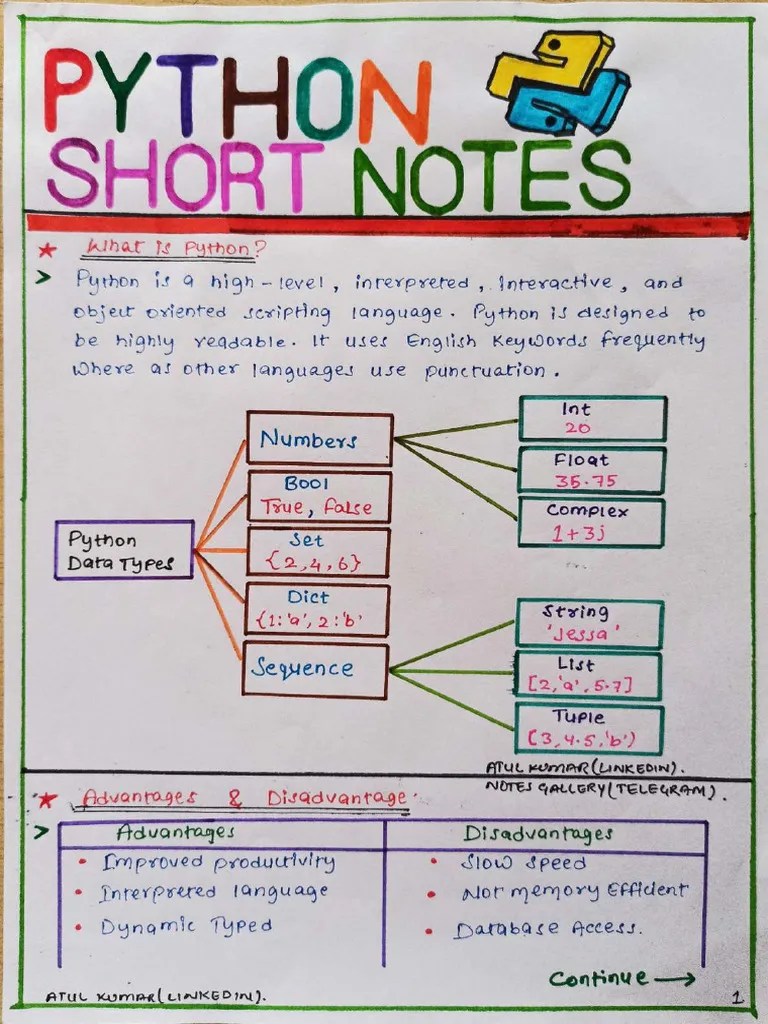 PYTHON
SHORT NOTES
What is Python?
Python is a high-level, interpreted, interactive, and
object oriented scripting language. Python is designed to
be highly readable. It uses English keywords frequently
where as other languages use punctuation.
Python
Data Types
Numbers
Bool
True, False
Set
{2,4,6}
Dict
{1:'a', 2:'b'
Sequence
Int
20
Float
35.75
Complex
1+3j
String
'Jessa'
List
[2,'a',5.7]
Tuple
(3,4.5,'b')
ATUL KUMAR(LINKEDIN).
NOTES GALLERY(TELEGRAM).
Advantages & Disadvantage
Advantages
Improved productivity
Interpreted language
Dynamic Typed
Disadvantages
Slow speed
Not memory Efficient
Database Access.
Continue →
ATUL KUMAR(LINKEDIN).
1